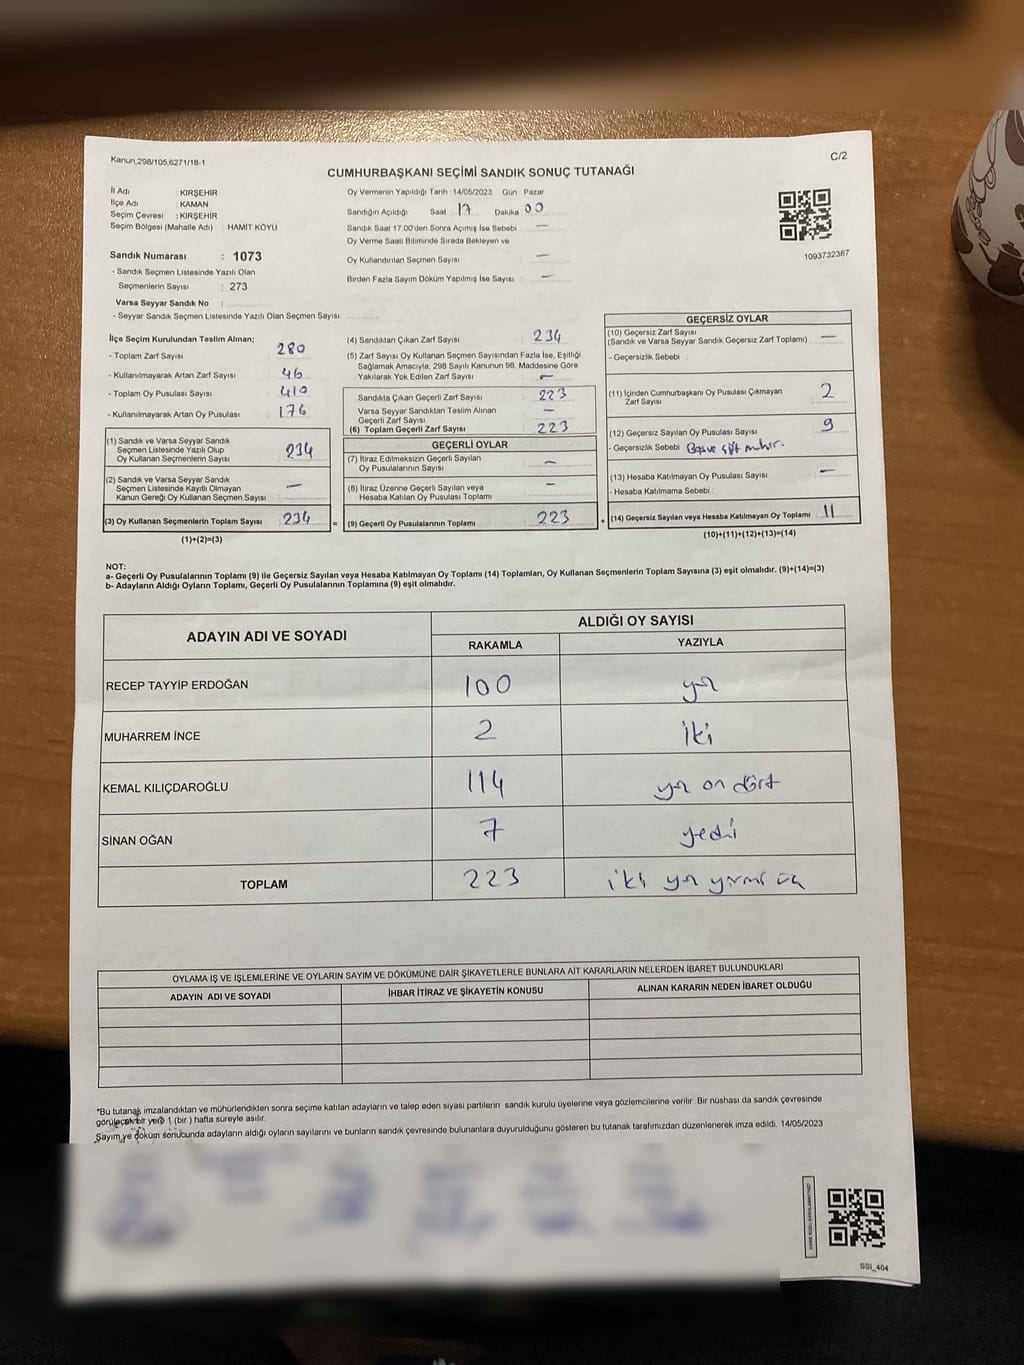 Kanun,298/105,6271/18-1
C/2
CUMHURBAŞKANI SEÇİMİ SANDIK SONUÇ TUTANAĞI
İl Adı : KIRŞEHİR
İlçe Adı : KAMAN
Seçim Çevresi : KIRŞEHİR
Seçim Bölgesi (Mahalle Adı) HAMİT KÖYÜ
Sandık Numarası : 1073
- Sandık Seçmen Listesinde Yazılı Olan
Seçmenlerin Sayısı : 273
Varsa Seyyar Sandık No :
- Seyyar Sandık Seçmen Listesinde Yazılı Olan Seçmen Sayısı:
Oy Vermenin Yapıldığı Tarih :14/05/2023 Gün : Pazar
Sandığın Açıldığı Saat : 17 Dakika : 00
Sandık Saat 17:00'den Sonra Açımış İse Sebebi : —
Oy Verme Saati Bitiminde Sırada Bekleyen ve
Oy Kullandırılan Seçmen Sayısı : —
Birden Fazla Sayım Döküm Yapılmış İse Sayısı : —
1093732387
İlçe Seçim Kurulundan Teslim Alınan;
- Toplam Zarf Sayısı : 280
- Kullanılmayarak Artan Zarf Sayısı : 46
- Toplam Oy Pusulası Sayısı : 410
- Kullanılmayarak Artan Oy Pusulası : 176
(1) Sandık ve Varsa Seyyar Sandık
Seçmen Listesinde Yazılı Olup
Oy Kullanan Seçmenlerin Sayısı : 234
(2) Sandık ve Varsa Seyyar Sandık
Seçmen Listesinde Kayıtlı Olmayan
Kanun Gereği Oy Kullanan Seçmen Sayısı : —
(3) Oy Kullanan Seçmenlerin Toplam Sayısı : 234
(1)+(2)=(3)
(4) Sandıktan Çıkan Zarf Sayısı : 234
(5) Zarf Sayısı Oy Kullanan Seçmen Sayısından Fazla İse, Eşitliği
Sağlamak Amacıyla; 298 Sayılı Kanunun 98. Maddesine Göre
Yakılarak Yok Edilen Zarf Sayısı : —
Sandıkta Çıkan Geçerli Zarf Sayısı : 223
Varsa Seyyar Sandıktan Teslim Alınan
Geçerli Zarf Sayısı : —
(6) Toplam Geçerli Zarf Sayısı : 223
GEÇERLİ OYLAR
(7) İtiraz Edilmeksizin Geçerli Sayılan
Oy Pusulalarının Sayısı : —
(8) İtiraz Üzerine Geçerli Sayılan veya
Hesaba Katılan Oy Pusulası Toplamı : —
= (9) Geçerli Oy Pusulalarının Toplamı : 223
GEÇERSİZ OYLAR
(10) Geçersiz Zarf Sayısı
(Sandık ve Varsa Seyyar Sandık Geçersiz Zarf Toplamı) : —
- Geçersizlik Sebebi :
(11) İçinden Cumhurbaşkanı Oy Pusulası Çıkmayan
Zarf Sayısı : 2
(12) Geçersiz Sayılan Oy Pusulası Sayısı : 9
- Geçersizlik Sebebi
(13) Hesaba Katılmayan Oy Pusulası Sayısı : —
- Hesaba Katılmama Sebebi :
+ (14) Geçersiz Sayılan veya Hesaba Katılmayan Oy Toplamı : 11
(10)+(11)+(12)+(13)=(14)
NOT:
a- Geçerli Oy Pusulalarının Toplamı (9) ile Geçersiz Sayılan veya Hesaba Katılmayan Oy Toplamı (14) Toplamları, Oy Kullanan Seçmenlerin Toplam Sayısına (3) eşit olmalıdır. (9)+(14)=(3)
b- Adayların Aldığı Oyların Toplamı, Geçerli Oy Pusulalarının Toplamına (9) eşit olmalıdır.
ADAYIN ADI VE SOYADI ALDIĞI OY SAYISI
RAKAMLA YAZIYLA
RECEP TAYYİP ERDOĞAN 100 yüz
MUHARREM İNCE 2 iki
KEMAL KILIÇDAROĞLU 114 yüz on dört
SİNAN OĞAN 7 yedi
TOPLAM 223 iki yüz yirmi üç
OYLAMA İŞ VE İŞLEMLERİNE VE OYLARIN SAYIM VE DÖKÜMÜNE DAİR ŞİKAYETLERLE BUNLARA AİT KARARLARIN NELERDEN İBARET BULUNDUKLARI
ADAYIN ADI VE SOYADI İHBAR İTİRAZ VE ŞİKAYETİN KONUSU ALINAN KARARIN NEDEN İBARET OLDUĞU
*Bu tutanak imzalandıktan ve mühürlendikten sonra seçime katılan adayların ve talep eden siyasi partilerin sandık kurulu üyelerine veya gözlemcilerine verilir. Bir nüshası da sandık çevresinde
görülecek bir yere 1 (bir ) hafta süreyle asılır.
Sayım ve döküm sonucunda adayların aldığı oyların sayılarını ve bunların sandık çevresinde bulunanlara duyurulduğunu gösteren bu tutanak tarafımızdan düzenlenerek imza edildi. 14/05/2023
SSI_404